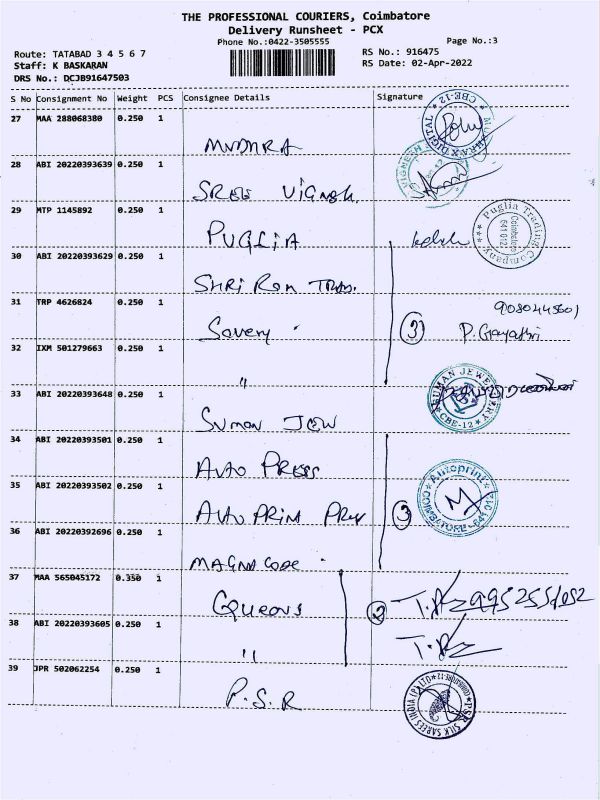 THE PROFESSIONAL COURIERS, Coimbatore
Delivery Runsheet - PCX
Phone No.:0422-3505555
Page No.:3
Route: TATABAD 3 4 5 6 7
RS No.: 916475
Staff: K BASKARAN
RS Date: 02-Apr-2022
DRS No.: DCJB91647503
S No Consignment No Weight PCS Consignee Details Signature
27 MAA 288068380 0.250 1
MUDHRA
28 ABI 20220393639 0.250 1
SREE VIGNESH
VIGNESH
29 MTP 1145892 0.250 1
PUGLIA
Puglia Trading Company
Coimbatore
641 012
30 ABI 20220393629 0.250 1
Shri Ram
31 TRP 4626824 0.250 1
Savery
3
P. Gayathri
32 IXM 501279663 0.250 1
"
33 ABI 20220393648 0.250 1
SUMAN JEW
SUMAN JEWELLERY
CBE-12
34 ABI 20220393501 0.250 1
AUTO PRESS
35 ABI 20220393502 0.250 1
AUTO PRINT PRESS
3
Autoprint
COIMBATORE - 641 012
36 ABI 20220392696 0.250 1
MAGNA CODE
37 MAA 565045172 0.350 1
Queens
2
38 ABI 20220393605 0.250 1
"
39 JPR 502062254 0.250 1
P.S.R
PSR SILK SAREES INDIA (P) LTD
COIMBATORE-12